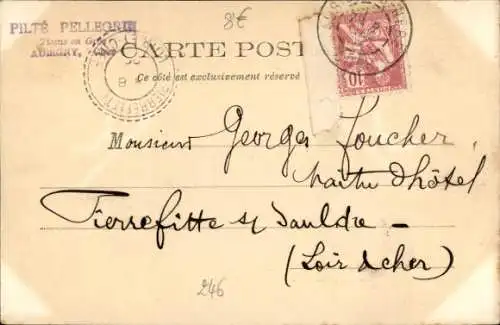 8€
PILTÉ PELLEGRIN
AUBIGNY,
CARTE POST
Ce côté est exclusivement réservé
10
PIERREFITTE
8
Monsieur Georges Foucher
maître d'hôtel
Pierrefitte s/ Sauldre -
(Loir & cher)
246